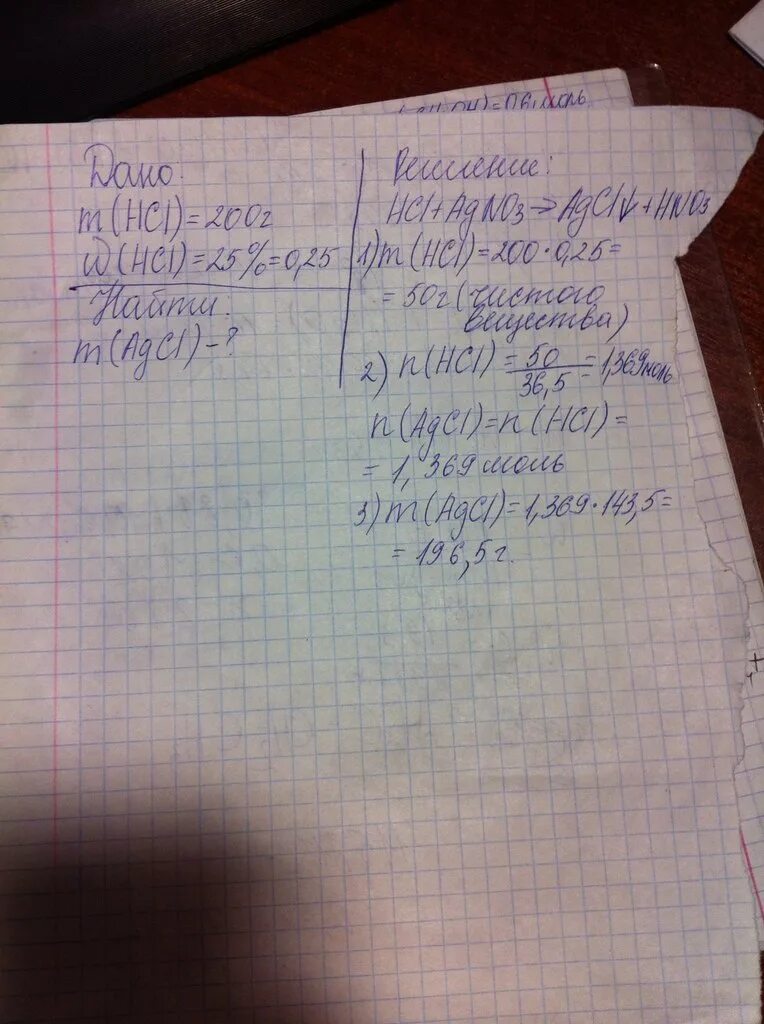 Дано:
m(HCl)=200г
W(HCl)=25%=0,25
Найти:
m(AgCl)-?
Решение:
HCl+AgNO3→AgCl↓+HNO3
1)m(HCl)=200·0,25=
=50г(чистого
вещества)
2) n(HCl)=50/36,5=1,369моль
n(AgCl)=n(HCl)=
=1,369моль
3)m(AgCl)=1,369·143,5=
=196,5г.
)=0,6моль